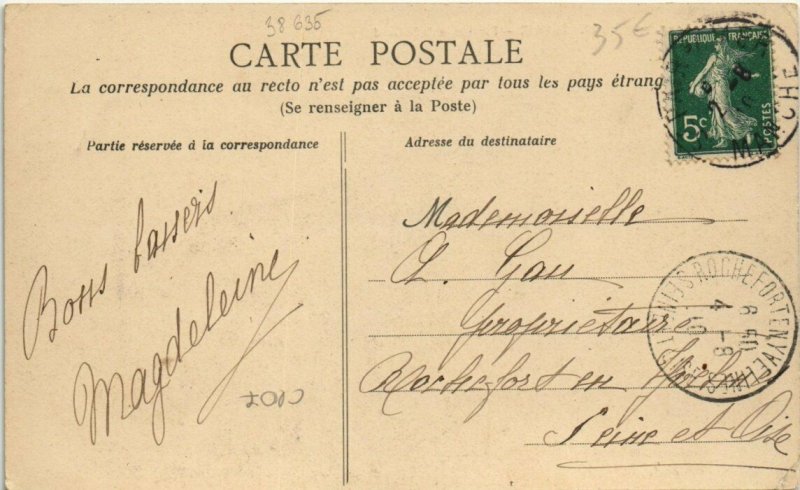 38 635
35€
CARTE POSTALE
La correspondance au recto n'est pas acceptée par tous les pays étrang
(Se renseigner à la Poste)
Partie réservée à la correspondance
Adresse du destinataire
REPUBLIQUE FRANÇAISE
5c
POSTES
MANCHE
Bons baisers
Magdeleine
Mademoiselle
Gau
propriétaire
Rochefort en Yvelines
Seine et Oise
ROCHEFORT EN YVELINES
6 50
4 -8
10